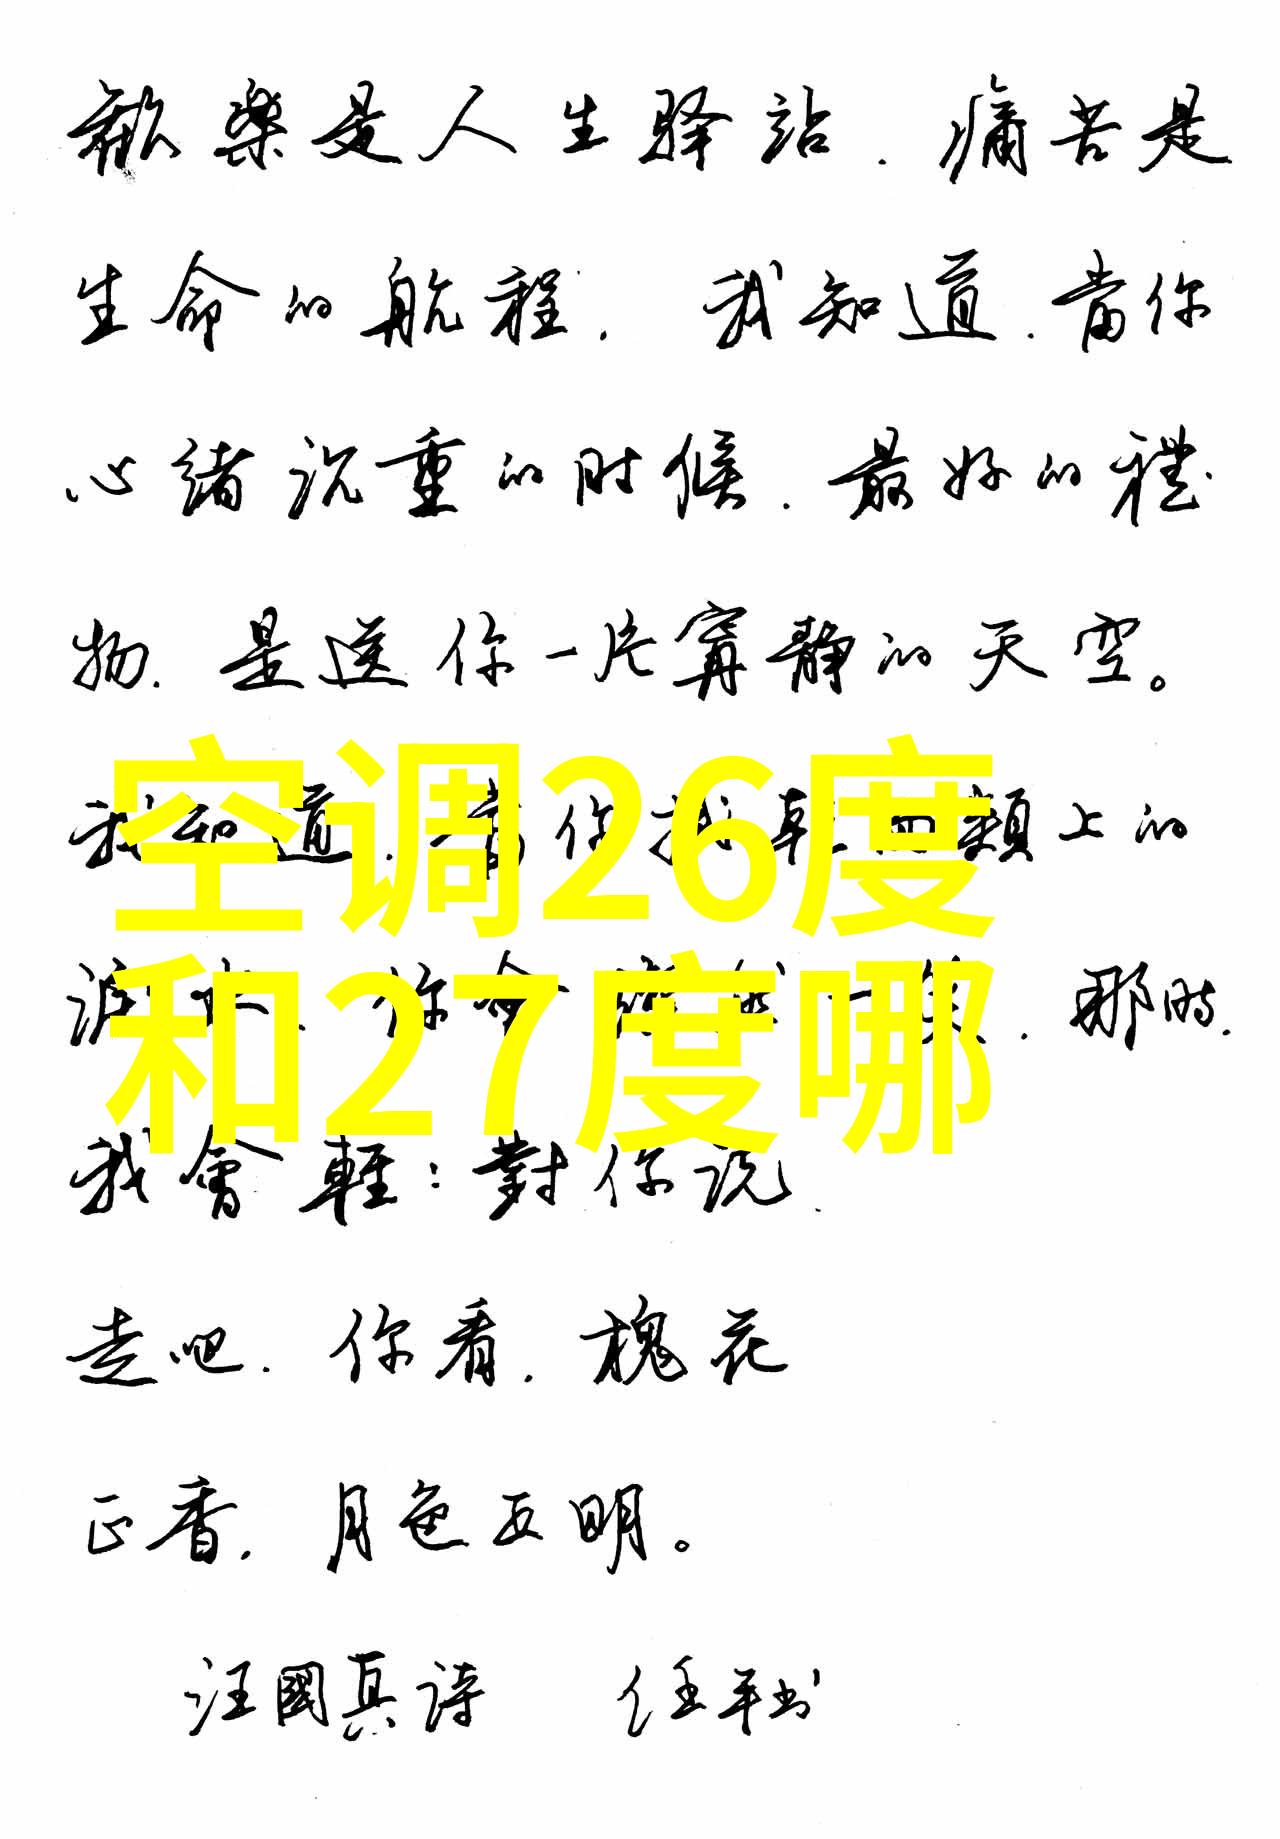 歡樂是人生驿站.痛苦是
生命的航程.我知道.當你
心緒沉重的时候.最好的禮
物.是送你一片寧静的天空。
空调26度
我知道.當你 上的
和27度哪
你會 一笑.那時.
我會輕:對你说.
走吧.你看.槐花
正香.月色正明。
汪國真詩 任平书